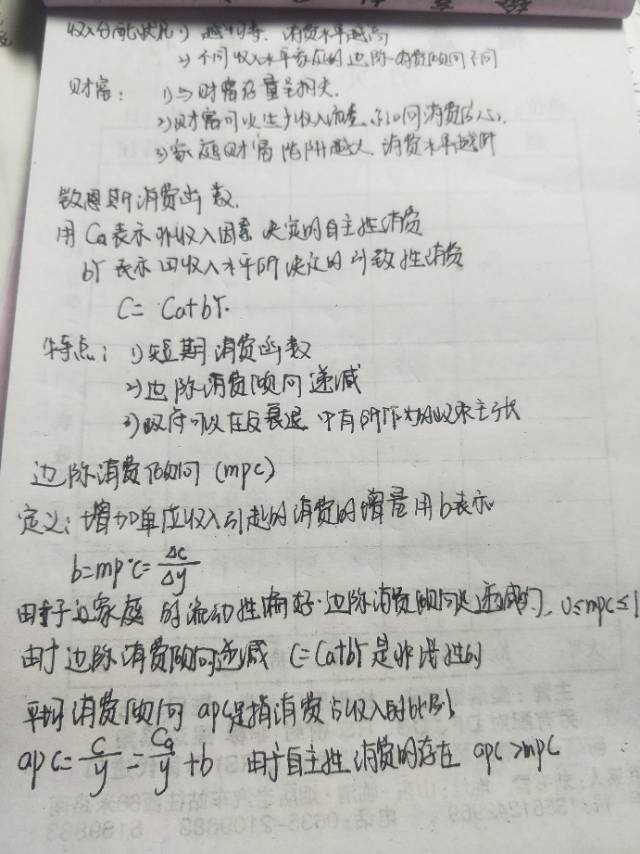 收入分配状况 1) 越均等. 消费水平越高
2) 不同收入水平家庭的边际消费倾向不同
财富: 1) 与财富存量呈相关.
2) 财富可以生产收入 消费信心.
3) 家庭财富 越大 消费水平越
凯恩斯消费函数.
用 Ca表示非收入因素决定的自主性消费
bY 表示由收入水平所决定的引致性消费
C= Ca+bY.
特点: 1) 短期消费函数
2) 边际消费倾向递减
3) 政府可以在反衰退中有所作为的政策主张
边际消费倾向 (mpc)
定义: 增加单位收入引起的消费的增量用b表示
b=mpc=Δc/Δy
由于 家庭的流动性偏好. 边际消费倾向是递减的. 0≤mpc≤1
由于边际消费倾向递减 C=Ca+bY是非线性的
平均消费倾向 apc是指消费占收入的比例
apc=c/y=Ca/y+b 由于自主性消费的存在 apc>mpc